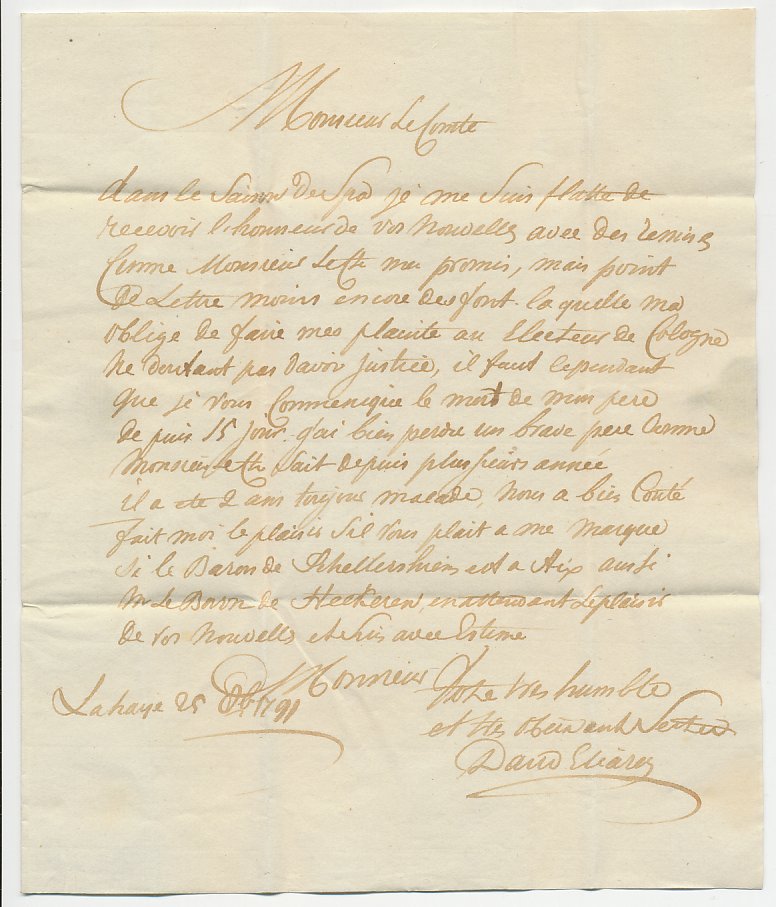 Monsieur Le Comte
dans le Saison De Spa je me suis flatte de
recevoir l'honneur de vos Nouvelles avec des remises
Comme Monsieur Le Cte ma promis, mais point
De Lettre moins encore des font. laquelle ma
oblige de faire mes plainte au Electeur de Cologne
Ne doutant pas davoir Justice, il faut cependant
que je vous Commenique le mort de mon pere
de puis 15 jour. j'ai bien perdu un brave pere Comme
Monsieur le Cte sait depuis plussieurs année
il a ete 2 ans toujours malade, Nous a bien Couté
fait moi le plaisir Sil Vous plait a me marque
si le Baron de est a Aix ausi
Mr Le Baron de Heckeren, en attendant Le plaisir
De vos Nouvelle et suis avec Estime
Monsieur
Votre tres humble
La haye 25 1791
et tres obeissant
David